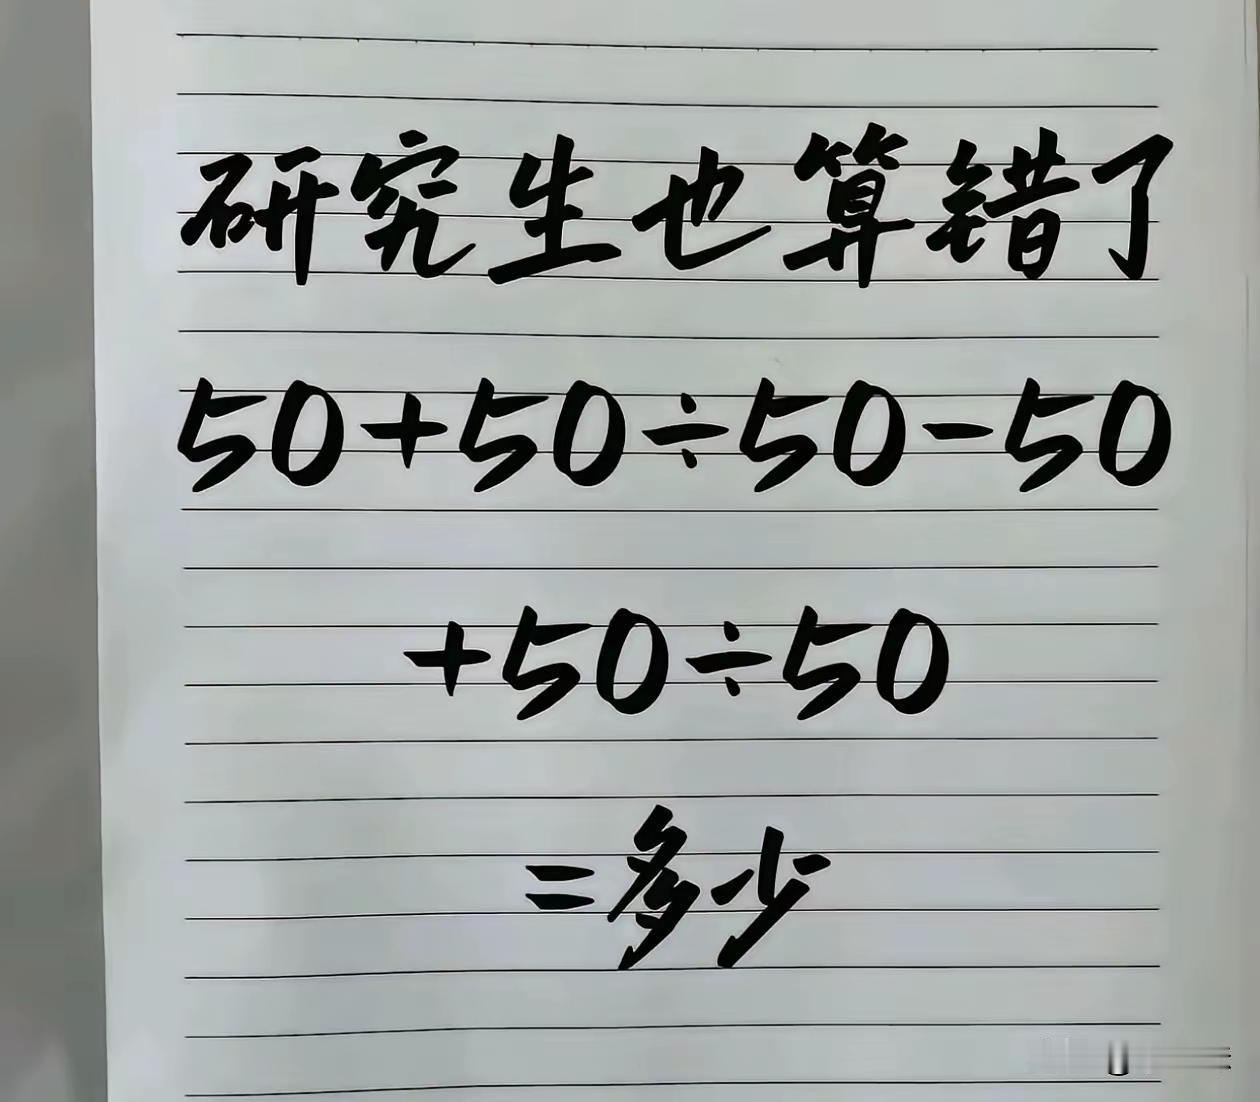 研究生也算错了
50+50÷50-50
+50÷50
=多少